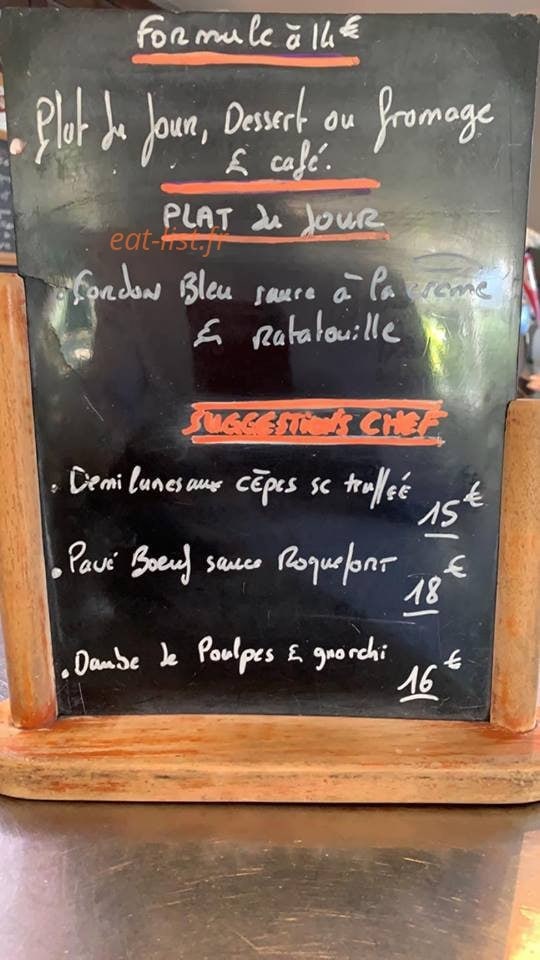 Formule à 14€
Plat du Jour, Dessert ou fromage
& café.
PLAT du JOUR
eat-list.fr
. Cordon Bleu sauce à la crème
& Ratatouille
SUGGESTIONS CHEF
. Demi lunes aux cèpes sc truffé
15€
. Pavé Boeuf sauce Roquefort
18€
. Daube de Poulpes & gnocchi
16€